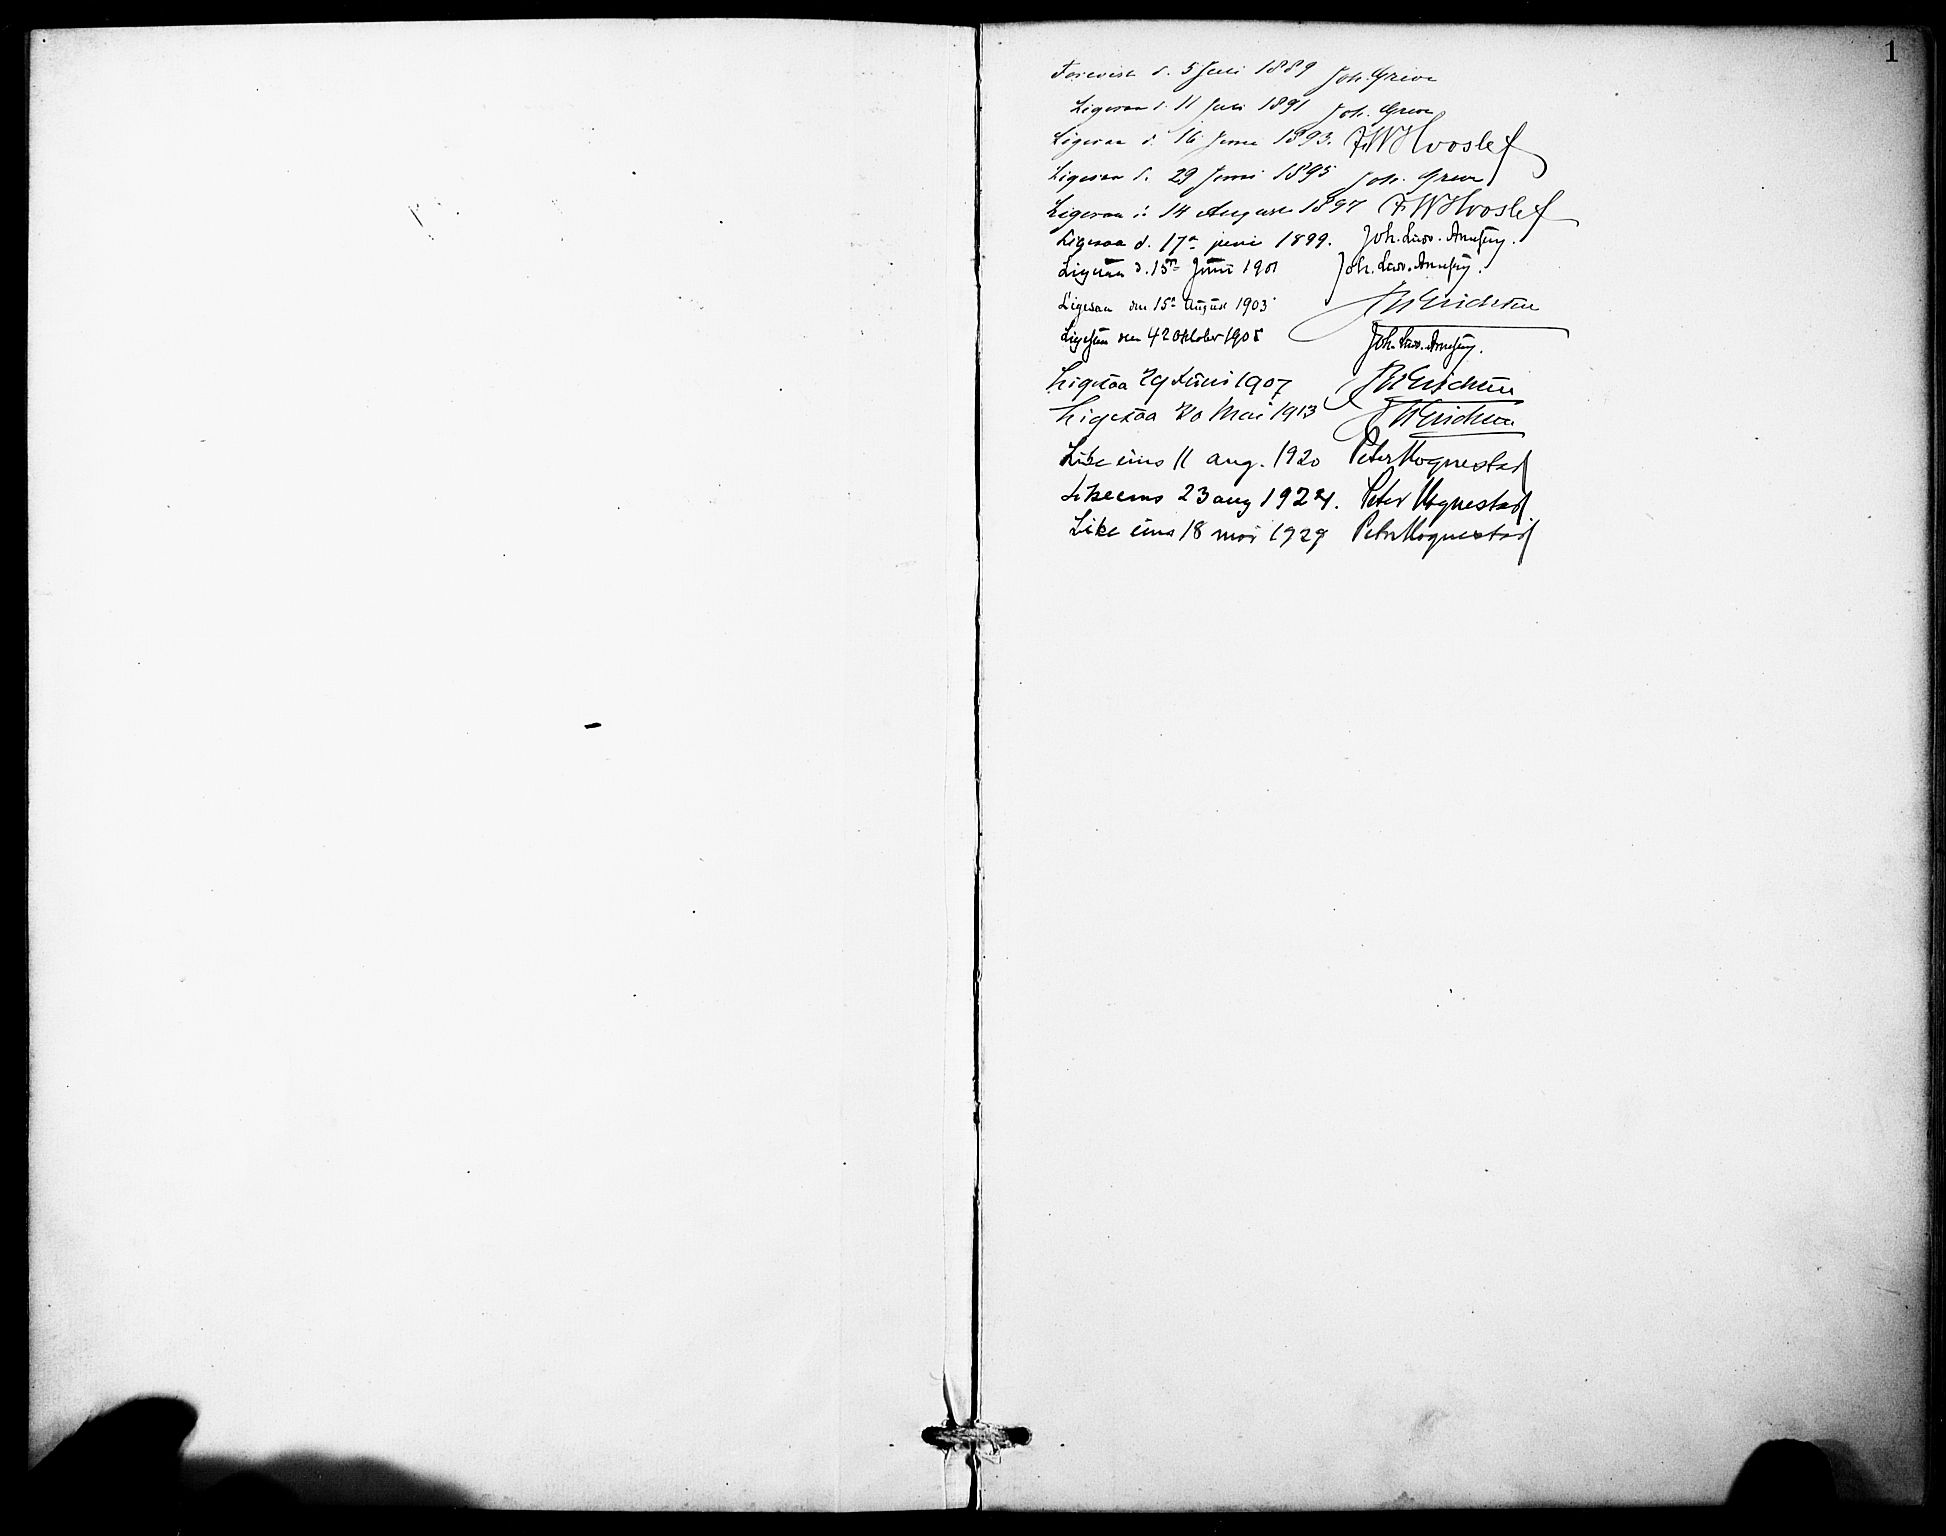 1
Forevist d. 5 Juli 1889 Joh. Greve
Ligesaa d. 11 Juli 1891 Joh. Greve
Ligesaa d. 16 Juni 1893. F.W Hvoslef
Ligesaa d. 29 Juni 1895 Joh. Greve
Ligesaa d. 14 August 1897 F.W Hvoslef
Ligesaa d. 17de juni 1899. Joh. Lavr.
Ligesaa d. 15de Juni 1901 Joh. Lavr.
Ligesaa den 15de August 1903
Ligesaa den 4de Oktober 1905 Joh. Lavr.
Ligesaa 29 Juni 1907
Ligesaa 20 Mai 1913
Likeeins 11 aug. 1920 Peter Hognestad
Likeeins 23 aug 1924. Peter Hognestad
Likeeins 18 mai 1929 Peter Hognestad